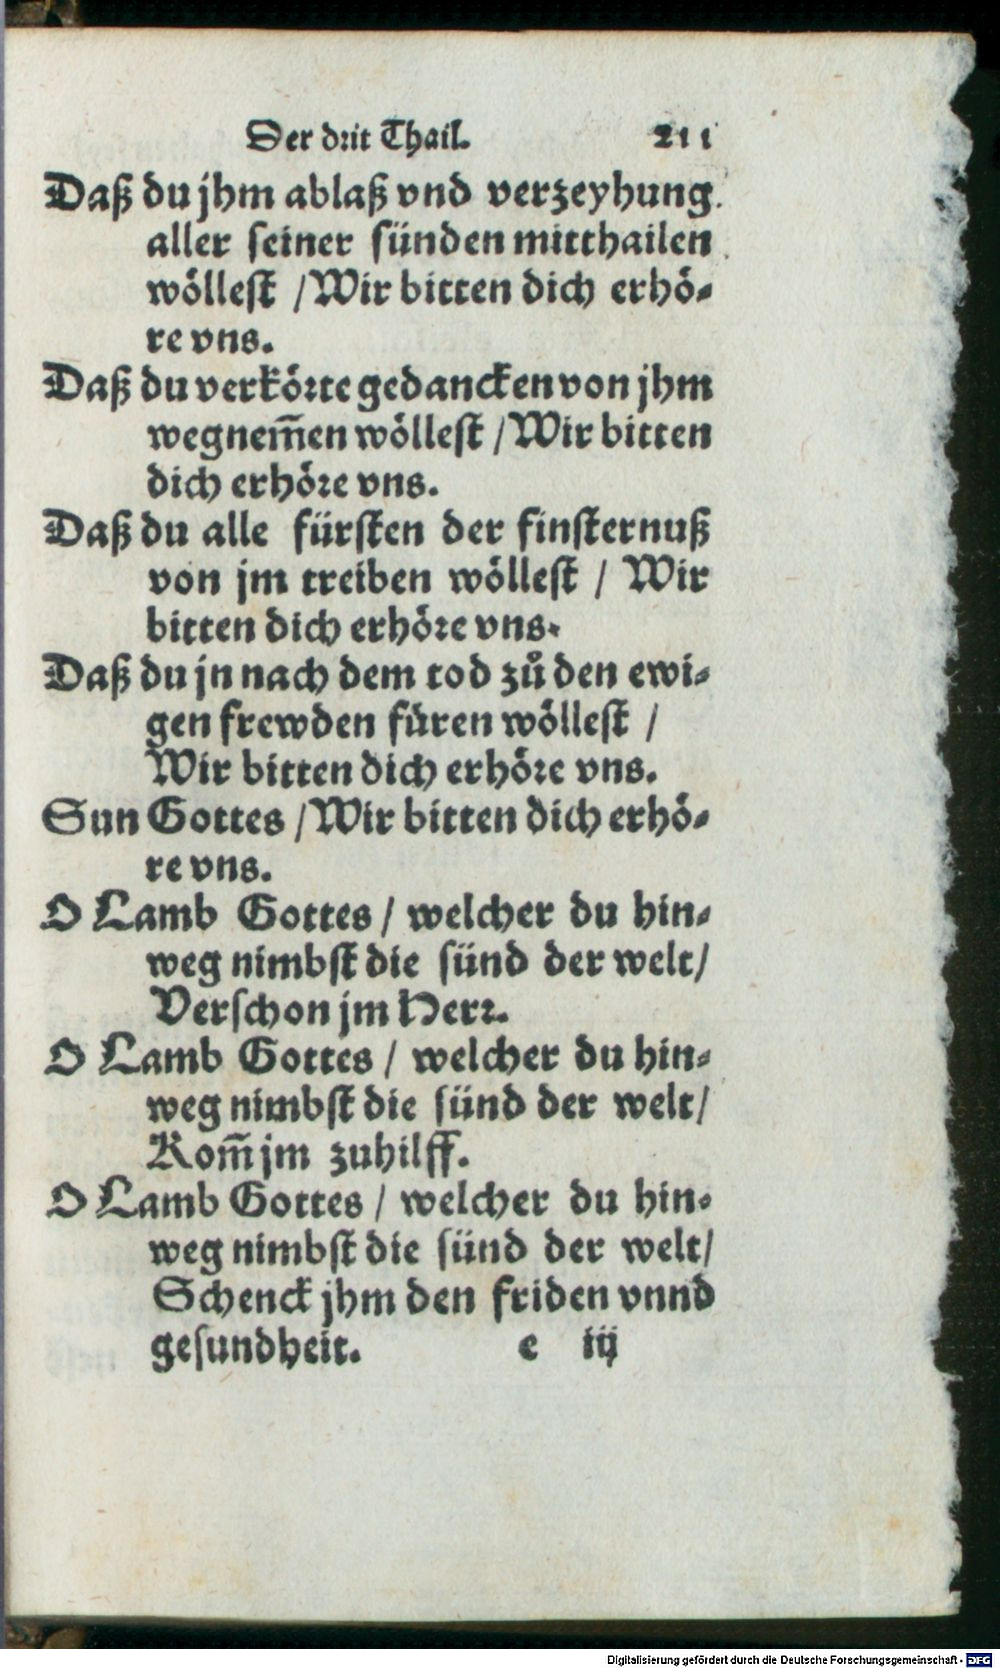 Der drit Thail. 211
Daß du jhm ablaß vnd verzeyhung
aller seiner sünden mitthailen
wöllest /Wir bitten dich erhö-
re vns.
Daß du verkörte gedancken von jhm
wegnem̃en wöllest /Wir bitten
dich erhöre vns.
Daß du alle fürsten der finsternuß
von jm treiben wöllest / Wir
bitten dich erhöre vns.
Daß du jn nach dem tod zů den ewi-
gen frewden füren wöllest /
Wir bitten dich erhöre vns.
Sun Gottes /Wir bitten dich erhö-
re vns.
O Lamb Gottes / welcher du hin-
weg nimbst die sünd der welt/
Verschon jm Herr.
O Lamb Gottes / welcher du hin-
weg nimbst die sünd der welt/
Kom̃ jm zuhilff.
O Lamb Gottes / welcher du hin-
weg nimbst die sünd der welt/
Schenck jhm den friden vnnd
gesundheit. e iij
Digitalisierung gefördert durch die Deutsche Forschungsgemeinschaft - DFG